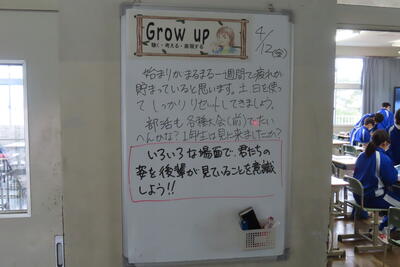 Grow up
聴く・考える・表現する
4/12(金)
始まりからまるまる一週間で疲れが
貯まっていると思います。土日を使っ
て しっかりリセットしてきましょう。
部活も各種大会(前)でたい
へんかな?1年生は見に来ましたか?
いろいろな場面で、君たちの
姿を後輩が見ていることを意識
しよう!!